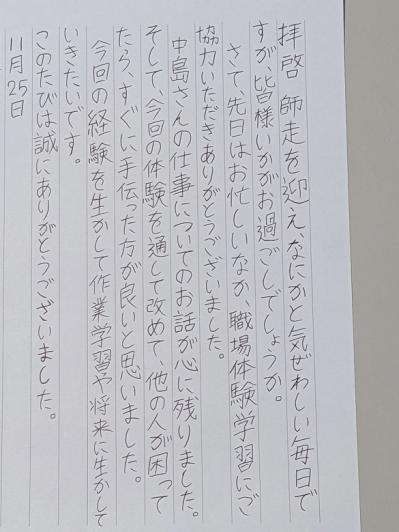 拝啓 師走を迎え、なにかと気ぜわしい毎日で
すが、皆様いかがお過ごしでしょうか。
さて、先日はお忙しいなか、職場体験学習にご
協力いただきありがとうございました。
中島さんの仕事についてのお話が心に残りました。
そして、今回の体験を通して改めて、他の人が困って
たら、すぐに手伝った方が良いと思いました。
今回の経験を生かして作業学習や将来に生かして
いきたいです。
このたびは誠にありがとうございました。
11月25日